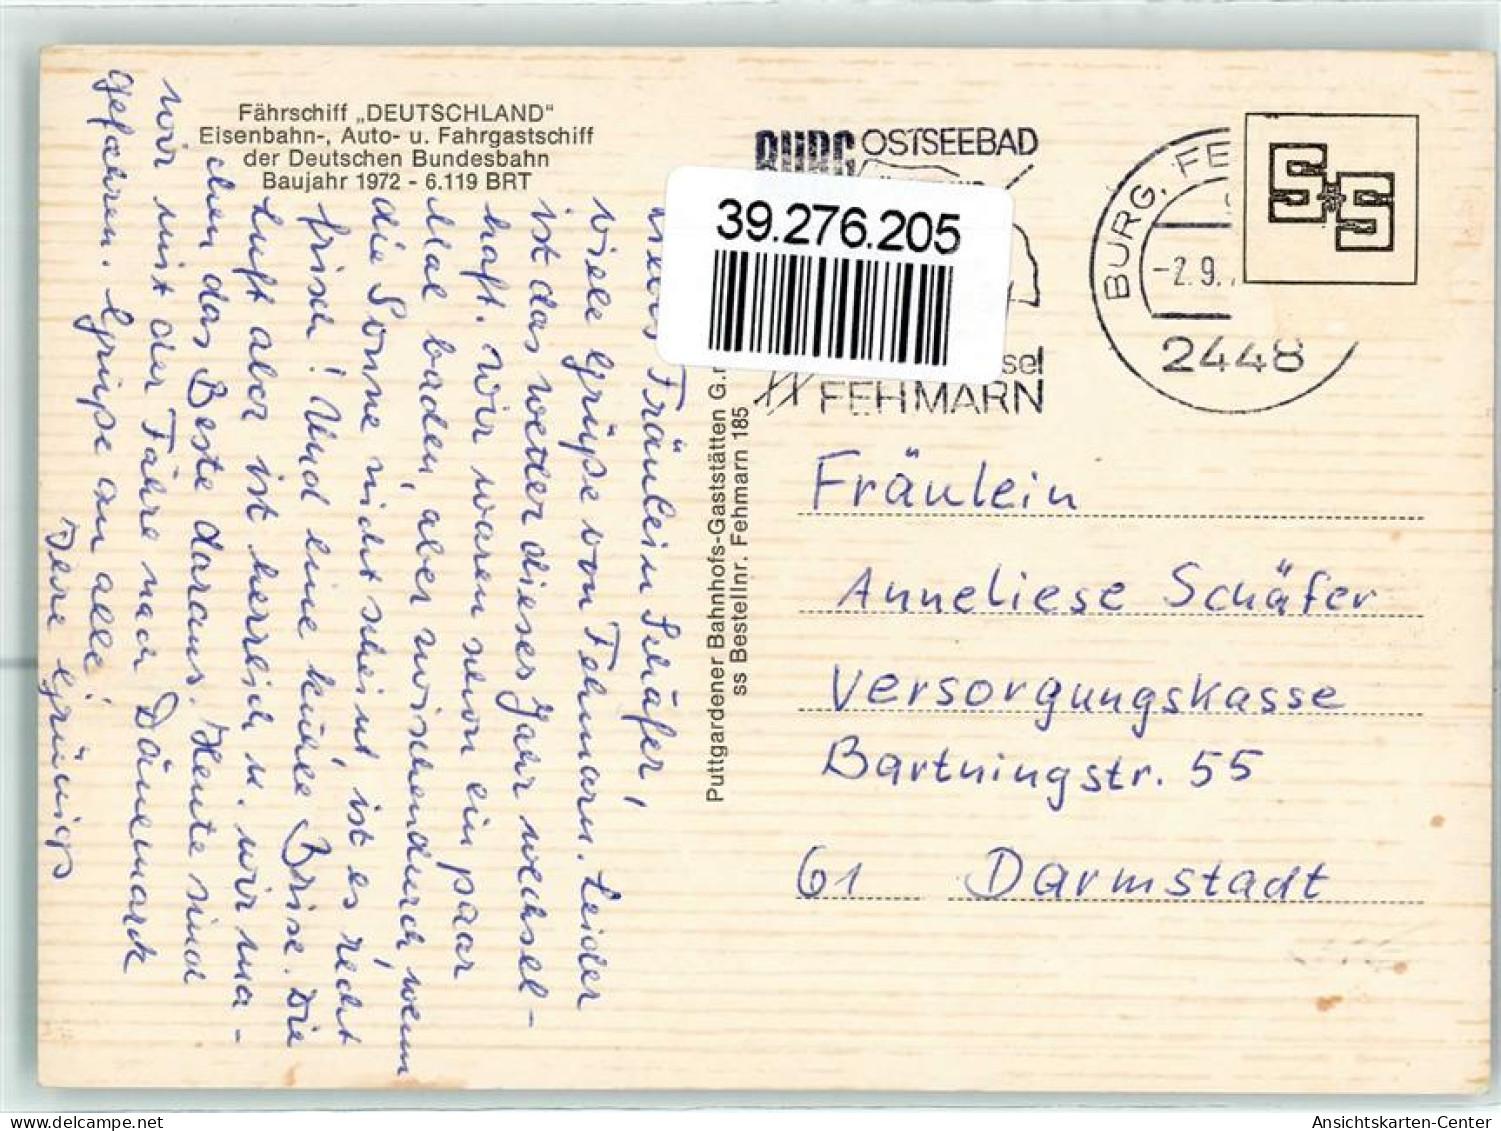 Fährschiff „DEUTSCHLAND"
Eisenbahn-, Auto- u. Fahrgastschiff
der Deutschen Bundesbahn
Baujahr 1972 - 6.119 BRT
Fräulein Schäfer,
viele Grüße von Fehmarn. Leider
ist das Wetter dieses Jahr wechsel-
haft. Wir waren schon ein paar
Mal baden, aber zwischendurch, wenn
die Sonne nicht scheint, ist es recht
frisch! Und eine kühle Brise. Die
Luft aber ist herrlich u. wir ma-
chen das Beste daraus. Heute sind
wir mit der Fähre nach Dänemark
gefahren. Grüße an alle!
Puttgardener Bahnhofs-Gaststätten G.
ss Bestellnr. Fehmarn 185
BURG OSTSEEBAD
sel
FEHMARN
39.276.205
BURG, FE
-2.9.
2448
SS
Fräulein
Anneliese Schäfer
Versorgungskasse
Bartningstr. 55
61 Darmstadt
Ansichtskarten-Center